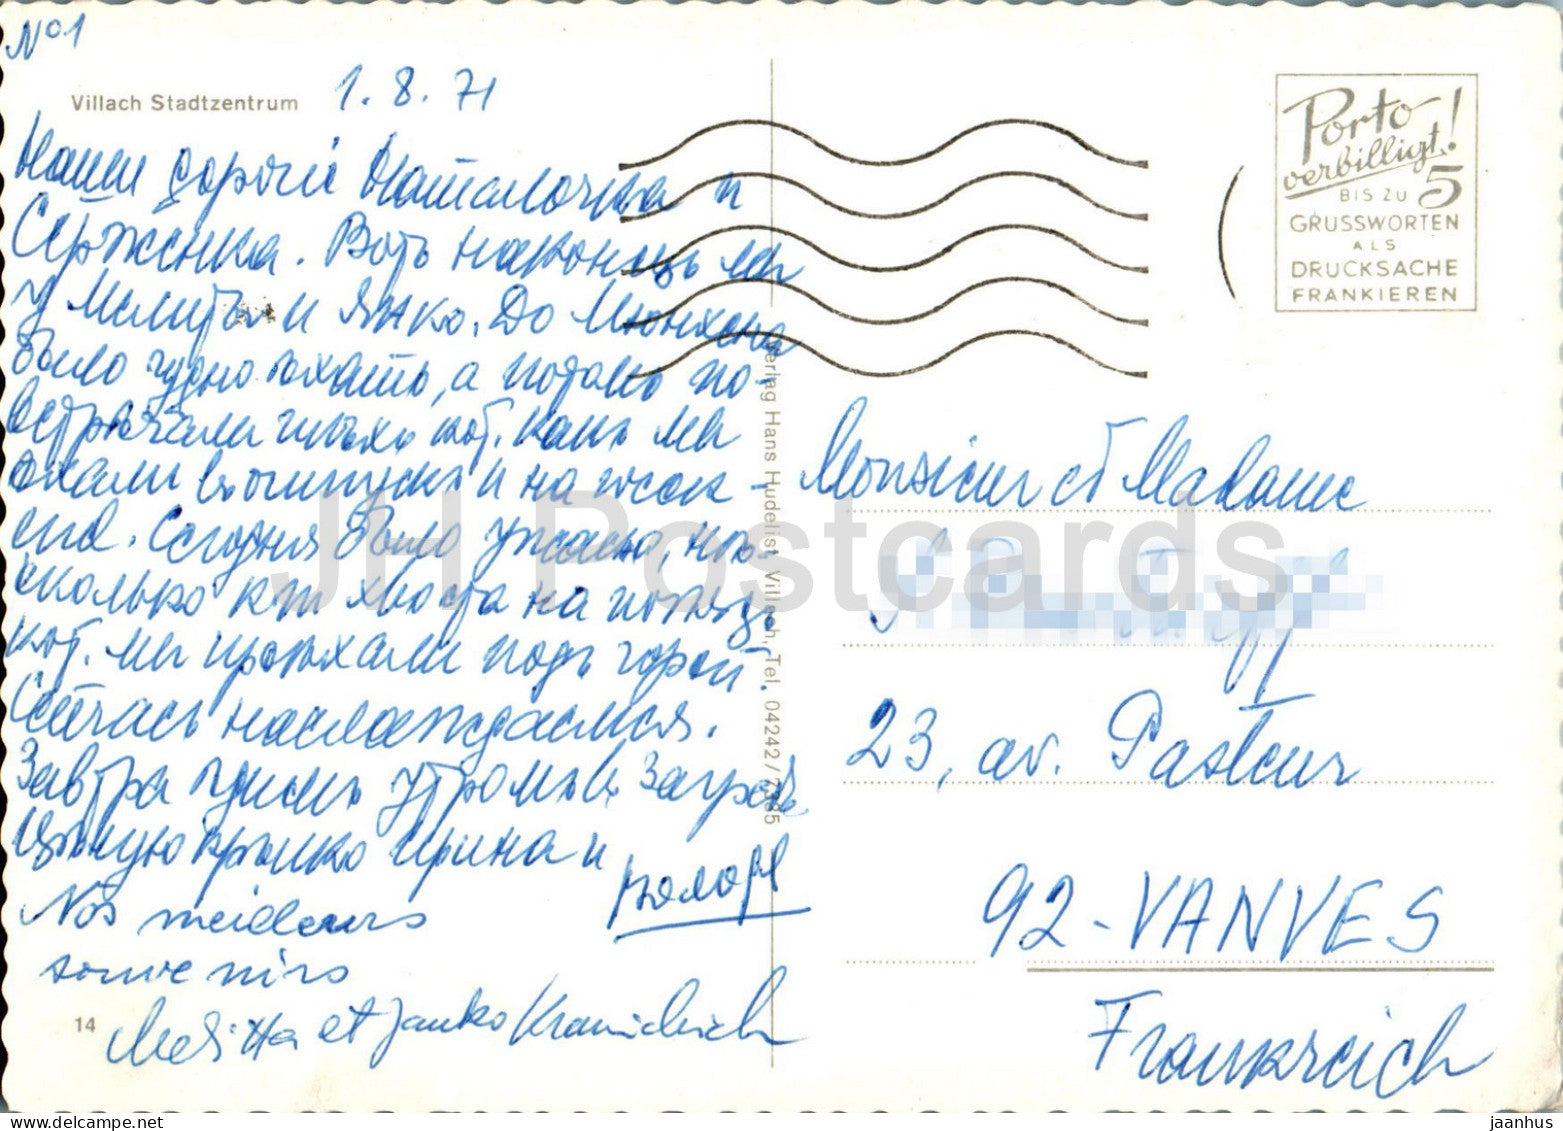 №1
Villach Stadtzentrum 1.8.71
Наши дорогие Наталочка и
Серженка. Вотъ наконецъ мы
у Мелиты и Янко. До Мюнхена
было чудно ѣхать, а потомъ по-
встрѣчали кот. какъ мы
ѣхали въ отпускъ и на week-
end. Сегодня было ужасно, нѣ-
сколько km хвоста на
кот. мы проѣхали подъ горой.
Сейчасъ наслаждаемся.
Завтра утромъ въ Загребъ
Цѣлую крѣпко Ирина и
Nos meilleurs
souvenirs
Melitta et Janko
14
Verlag Hans Hudelist, Villach, Tel. 04242/7385
Porto
verbilligt!
BIS ZU 5
GRUSSWORTEN
ALS
DRUCKSACHE
FRANKIEREN
Monsieur et Madame
23, av. Pasteur
92-VANVES
Frankreich
JH Postcards
jaanhus